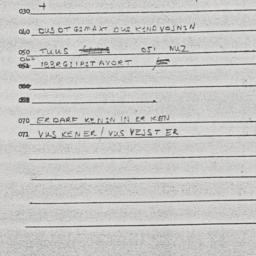 030 +
040 DUS OT GEMAXT DUS KIND VEININ
050 TUUS 051 NUZ
062 IBERGIIPITAVORT
070 ER DARF KENIN IN ER KEN
071 VUS KENER / VUS VEIST ER